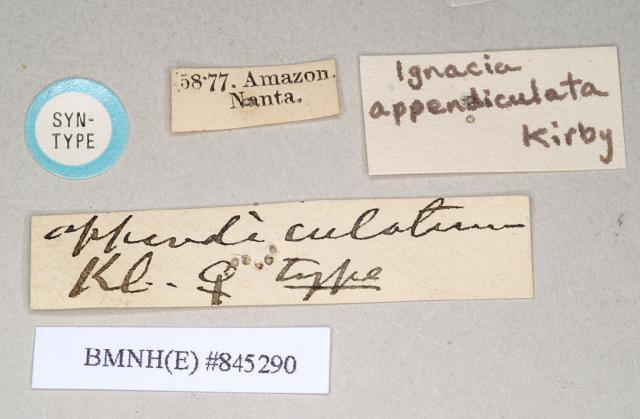 SYN-
TYPE
58·77. Amazon.
Nanta.
Ignacia
appendiculata
Kirby
appendiculatum
Kb. ♀ type
BMNH(E) #845290